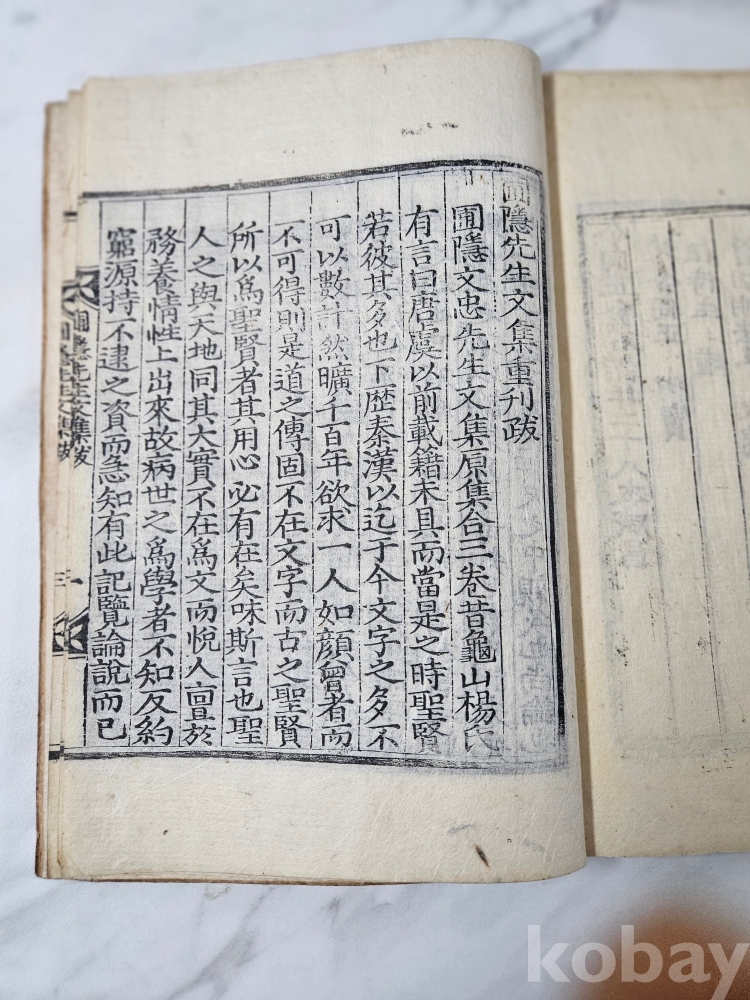 圃隱先生文集重刊跋
圃隱文忠先生文集原集合三卷昔龜山楊氏
有言曰唐虞以前載籍未具而當是之時聖賢
若彼其多也下歷秦漢以迄于今文字之多不
可以數計然曠千百年欲求一人如顏曾者而
不可得則是道之傳固不在文字而古之聖賢
所以爲聖賢者其用心必有在矣味斯言也聖
人之與天地同其大實不在爲文而悅人亶於
務養情性上出來故病世之爲學者不知反約
窮源持不逮之資而急知有此記覽論說而已
圃隱先生文集跋
kobay